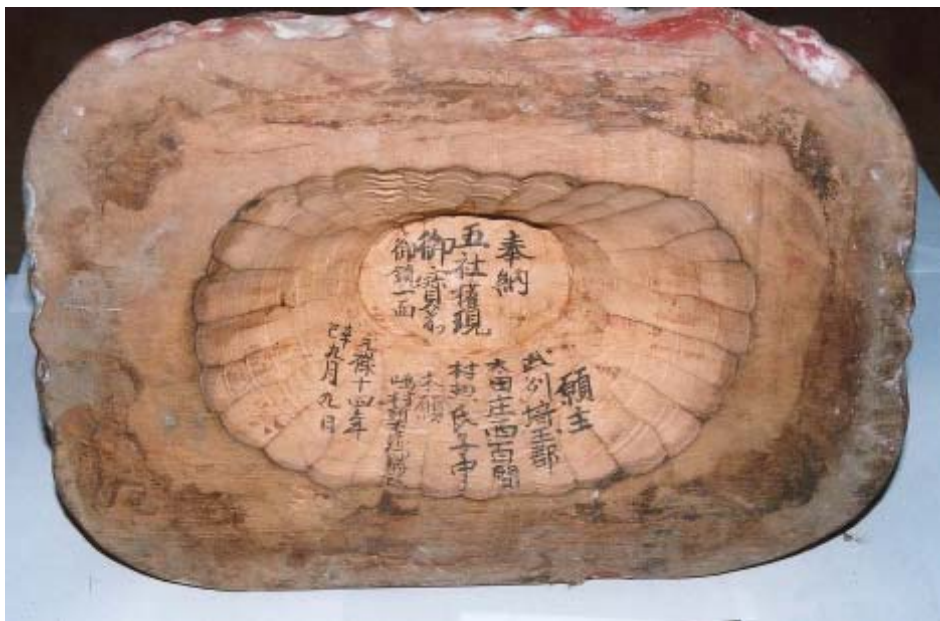 奉納
五社権現
御寳前
御鏡一面
願主
武州埼玉郡
太田庄西百間
村惣氏子中
本願
元禄十四年
辛巳九月九日